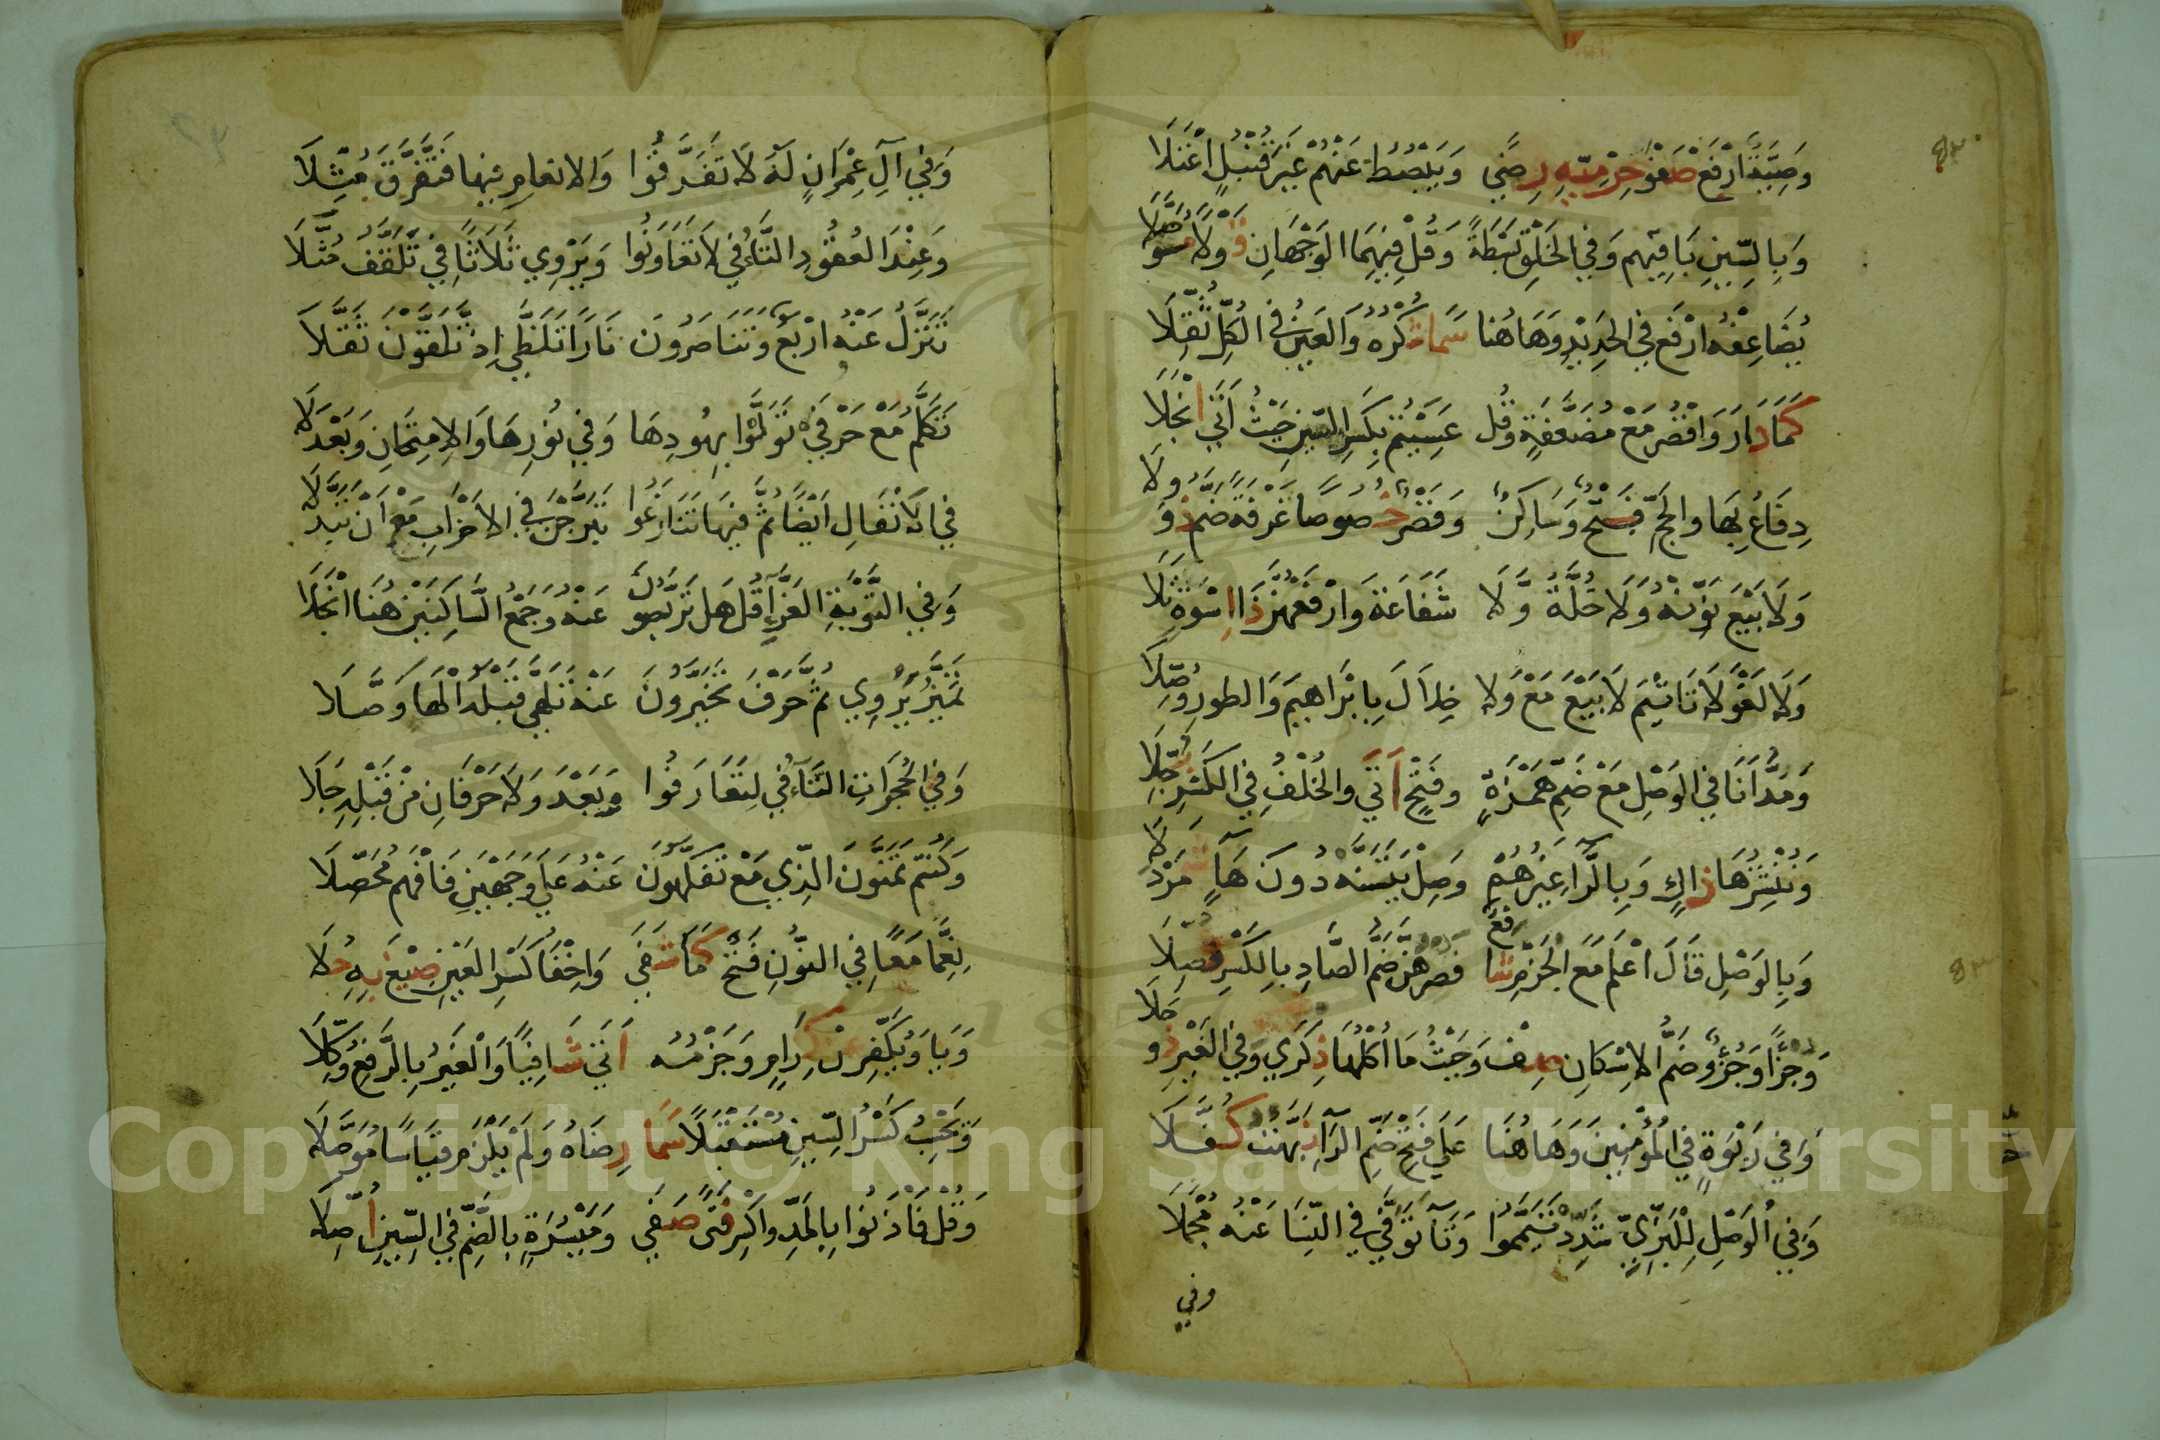 وَصِيَّةً ارْفَعْ صَفْوُ حِرْمِيِّهِ رِضًى وَيَبْصُطُ عَنْهُمْ غَيْرَ قُنْبُلٍ اعْتَلَا
وَبِالسِّينِ بَاقِيهِم وَفِي الخَلْقِ بَسْطَةً وَقُلْ فِيهِمَا الوَجْهَانِ قَوْلَا مُوَصَّلَا
يُضَاعِفْهُ ارْفَعْ فِي الحَدِيْدِ وَهَاهُنا سَمَا شُكْرُهُ وَالعَيْنُ فِي الكُلِّ ثُقِّلَا
كَمَا دَارَ وَاقْصُرْ مَعْ مُضَعَّفَةٍ وَقُل عَسَيْتُمْ بِكَسْرِ السِّينِ حَيْثُ أَتَى انْجَلَا
دِفَاعُ بِهَا وَالحَجِّ فَتْحٌ وَسَاكِنٌ وَقَصْرٌ خُصُوصًا غَرْفَةً ضَمَّ ذُو وِلَا
وَلَا بَيْعَ نَوِّنْهُ وَلَا خُلَّةٌ وَّلَا شَفَاعَةَ وَارْفَعْهُنَّ ذَا اِسْوَةٍ تَلَا
وَلَا لَغْوَ لَا تَاثِيْمَ لَا بَيْعَ مَعْ وَلَا خِلَالَ بِابْرَاهِيْمَ وَالطُّورِ وُصِّلَا
وَمَدُّ أَنَا فِي الوَصْلِ مَعْ ضَمِّ هَمْزَةٍ وَفَتْحٍ أَتَى وَالخُلْفُ فِي الكَسْرِ بُجِّلَا
وَنُنْشِزُهَا ذَاكٍ وَبِالرَّاءِ غَيْرُهُمْ وَصِلْ يَتَسَنَّهْ دُونَ هَاءٍ شَمَرْدَلَا
وَبِالوَصْلِ قَالَ اعْلَمْ مَعَ الجَزْمِ شَافِعٌ فَصُرْهُنَّ ضَمُّ الصَّادِ بِالكَسْرِ فُصِّلَا
وَجُزْءًا وَجُزْءٌ ضَمُّ الاِسْكَانِ صِفْ وَحَيْثُ مَا أُكْلُهَا ذِكْرَى وَفِي الغَيْرِ ذُو حُلَا
وَفِي رَبْوَةٍ فِي المُؤْمِنِينَ وَهَاهُنَا عَلَى فَتْحِ ضَمِّ الرَّاءِ نَبَّهْتُ كُفَّلَا
وَفِي الوَصْلِ لِلْبَزِّيِّ شَدِّدْ تَيَمَّمُوا وَتَاءَ تَوَفَّى فِي النِّسَا عَنْهُ مُجْمِلَا
وفي
وَفِي آلِ عِمْرَانٍ لَهُ لَا تَفَرَّقُوا وَالانعَامِ فِيهَا فَتَفَرَّقَ مُثِّلَا
وَعِنْدَ العُقُودِ التَّاءُ فِي لَا تَعَاوَنُوا وَيَرْوِي ثَلَاثًا فِي تَلَقَّفُ مُثَّلَا
تَنَزَّلُ عَنْهُ ارْبَعٌ وَتَنَاصَرُونَ نَارًا تَلَظَّى اِذْ تَلَقَّوْنَ ثُقِّلَا
تَكَلَّمُ مَعْ حَرْفَيْ تَوَلَّوْا بِهُودِهَا وَفِي نُورِهَا وَالاِمْتِحَانِ وَبَعْدَ لَا
فِي الاَنْفَالِ اَيْضًا ثُمَّ فِيهَا تَنَازَعُوا تَبَرَّجْنَ فِي الاَحْزَابِ مَعْ اَنْ تَبَدَّلَا
وَفِي التَّوْبَةِ الغَرَّاءِ قُل هَل تَرَبَّصُونَ عَنْهُ وَجَمْعُ السَّاكِنَيْنِ هُنَا انْجَلَا
تَمَيَّزُ يَرْوِي ثُمَّ حَرْفَ تَخَيَّرُونَ عَنْهُ تَلَهَّى قَبْلَهُ الْهَا وَصَّلَا
وَفِي الحُجُرَاتِ التَّاءُ فِي لِتَعَارَفُوا وَبَعْدَ وَلَا حَرْفَانِ مِنْ قَبْلِهِ جَلَا
وَكُنْتُمْ تَمَنَّوْنَ الَّذِي مَعْ تَفَكَّهُونَ عَنْهُ عَلَى وَجْهَيْنِ فَافْهَمْ مُحَصِّلَا
نِعِمَّا مَعًا فِي النُّونِ فَتْحٌ كَمَا شَفَى وَاِخْفَا كَسْرِ العَيْنِ صِيْغَ بِهِ حُلَا
وَيَا وَيُكَفِّرْ عَنْ كِرَامٍ وَجَزْمُهُ أَتَى شَافِيًا وَالْغَيْرُ بِالرَّفْعِ وُكِّلَا
وَيَحْسِبُ كَسْرُ السِّينِ مُسْتَقْبَلًا سَمَا رِضَاهُ وَلَمْ يَلْزَمْ قِيَاسًا مُؤَصَّلَا
وَقُلْ فَاْذَنُوا بِالمَدِّ وَاكْسِرْ فَتًى صَفَى وَمَيْسُرَةٍ بِالضَّمِّ فِي السِّينِ أُصِّلَا